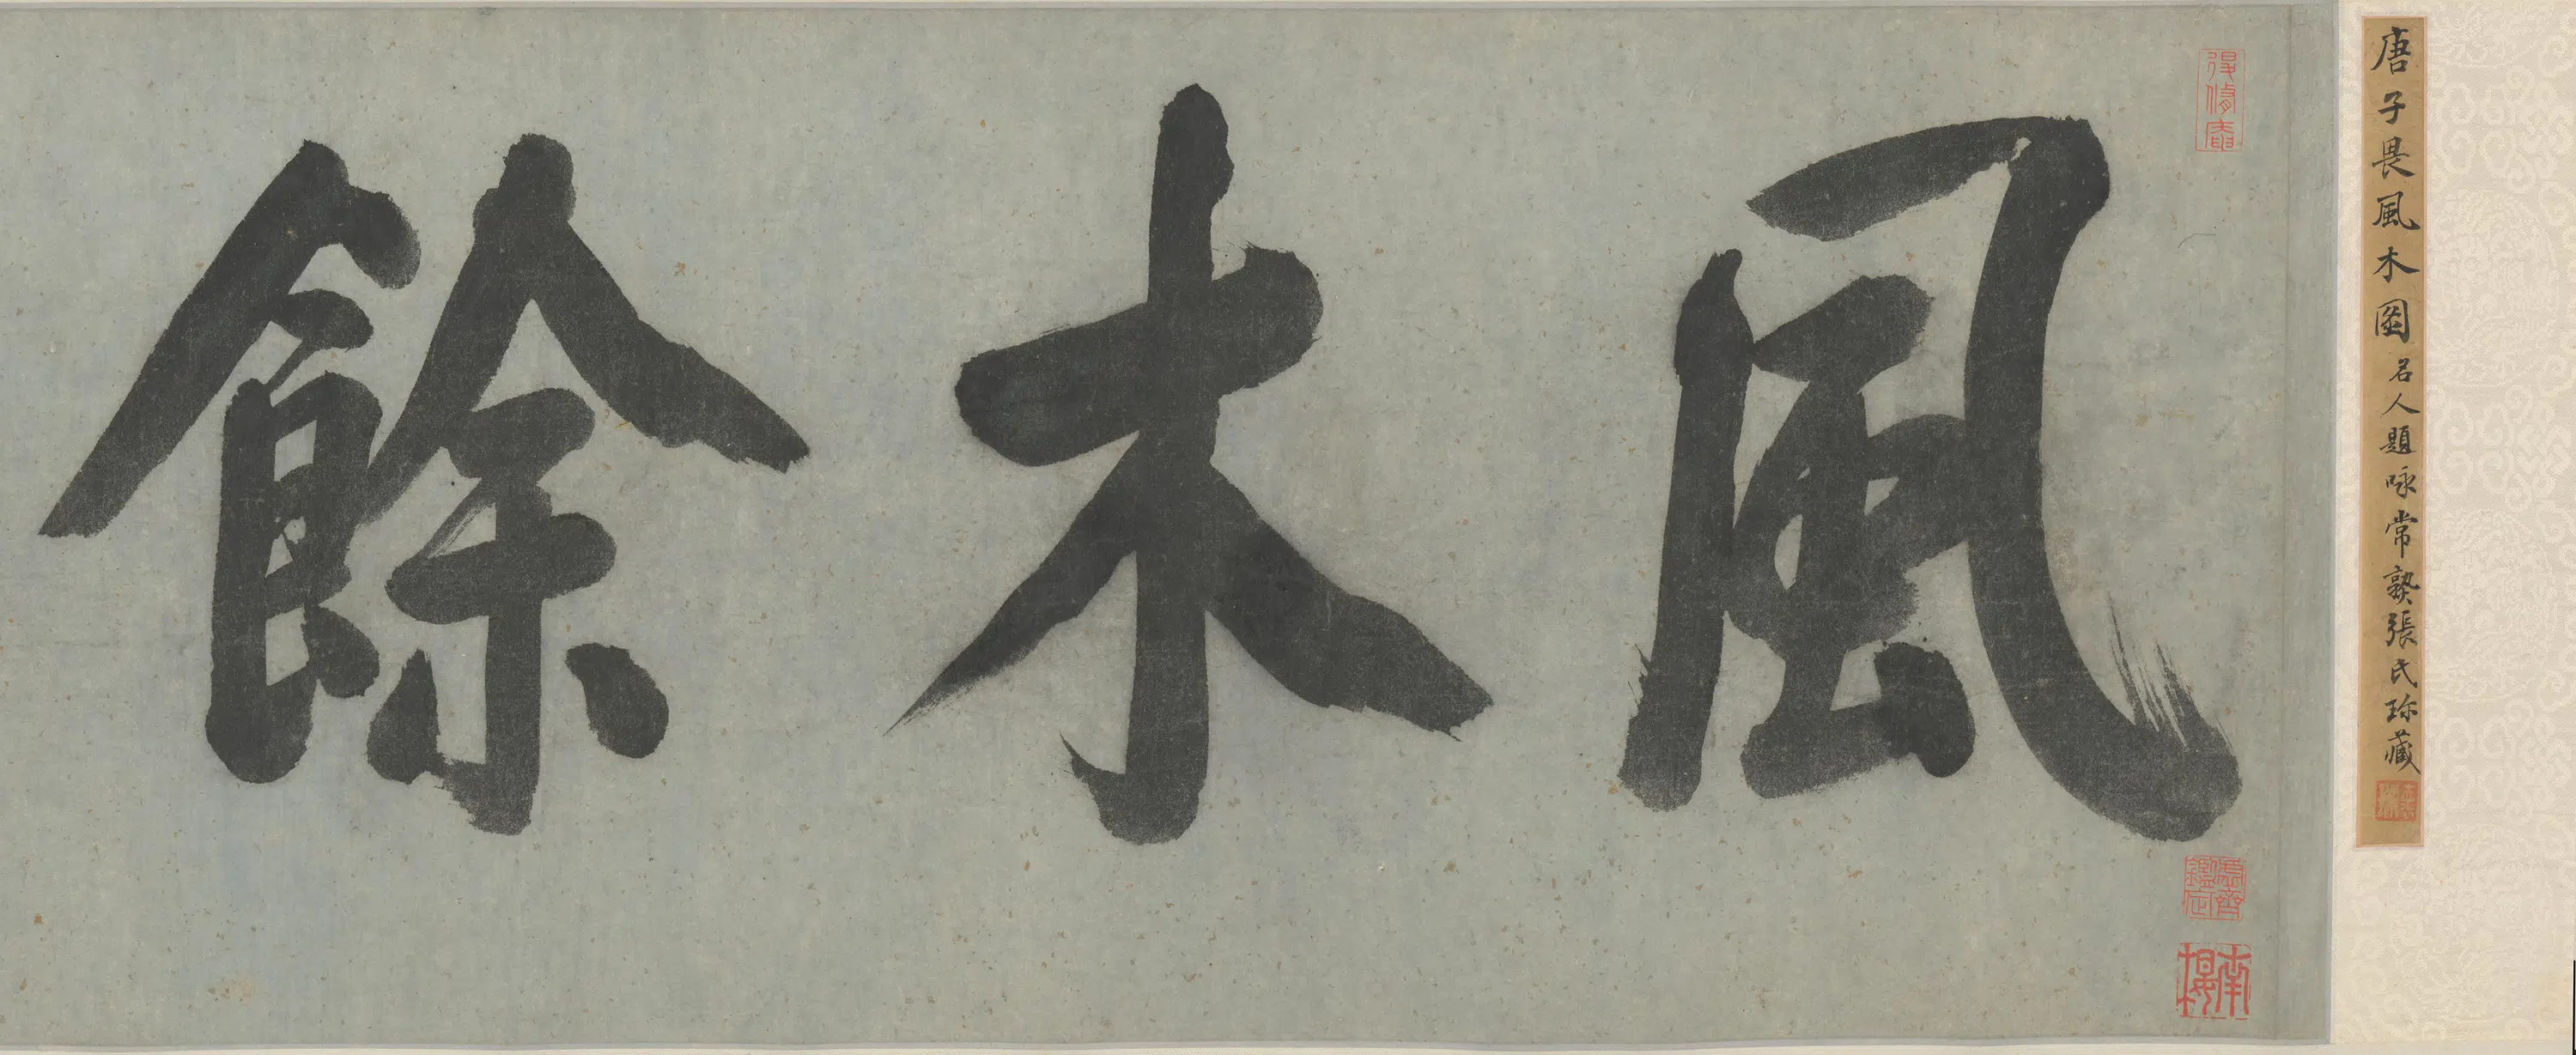 唐子畏風木圖 名人題咏 常熟張氏珍藏
風木餘